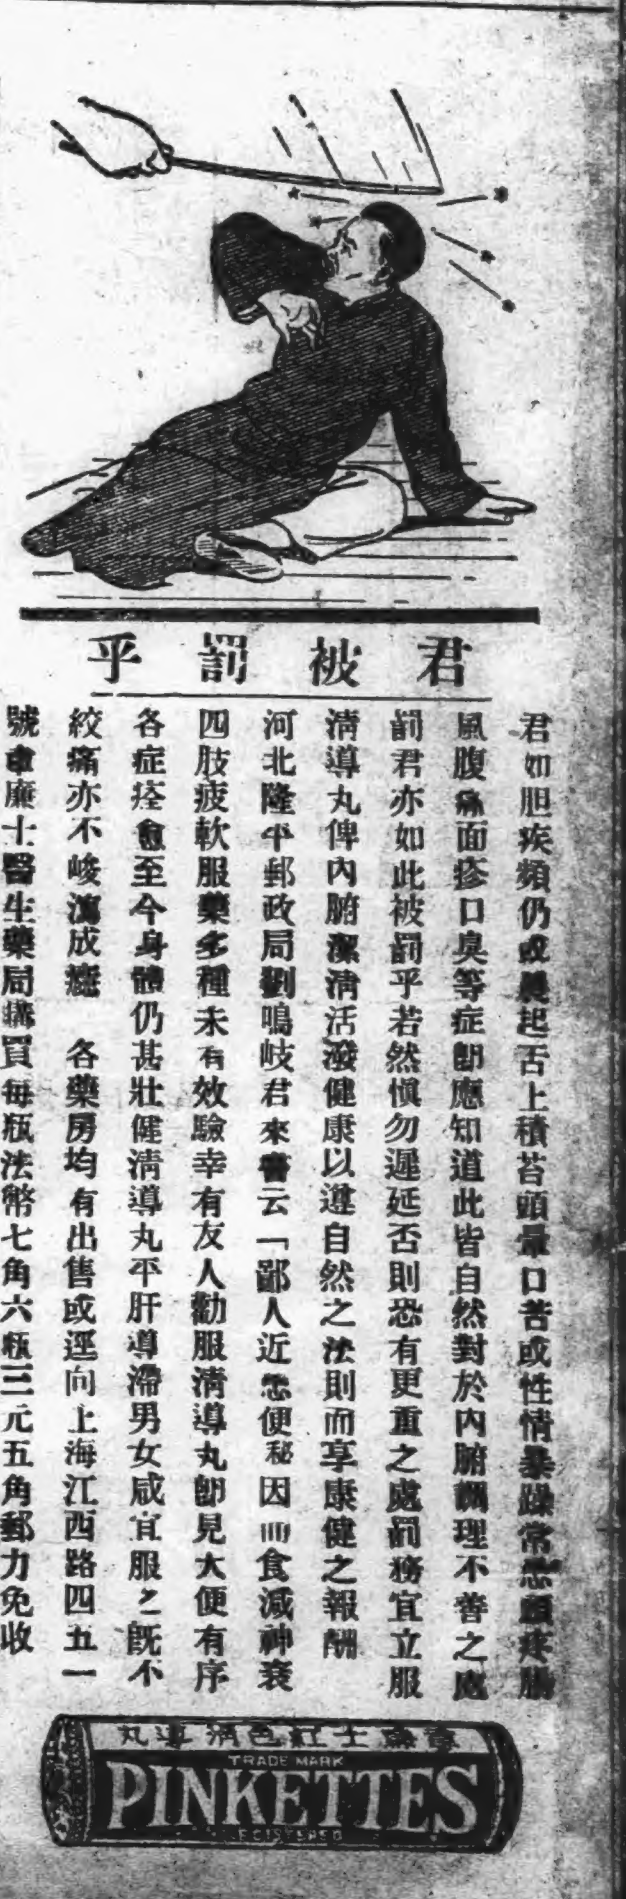 君被罰乎
君如胆疾頻仍或晨起舌上積苔頭暈口苦或性情暴躁常患頭疼腸
風腹痛面疹口臭等症卽應知道此皆自然對於內腑調理不善之處
罰君亦如此被罰乎若然愼勿遲延否則恐有更重之處罰務宜立服
淸導丸俾內腑潔淸活潑健康以遵自然之法則而享康健之報酬
河北隆平郵政局劉鳴岐君來書云「鄙人近患便秘因而食減神衰
四肢疲軟服藥多種未有效驗幸有友人勸服淸導丸卽見大便有序
各症痊愈至今身體仍甚壯健淸導丸平肝導滯男女咸宜服之旣不
絞痛亦不峻瀉成癮　各藥房均有出售或逕向上海江西路四五一
號韋廉士醫生藥局購買每瓶法幣七角六瓶三元五角郵力免收
丸導淸色紅士廉韋
TRADE MARK
PINKETTES
REGISTERED